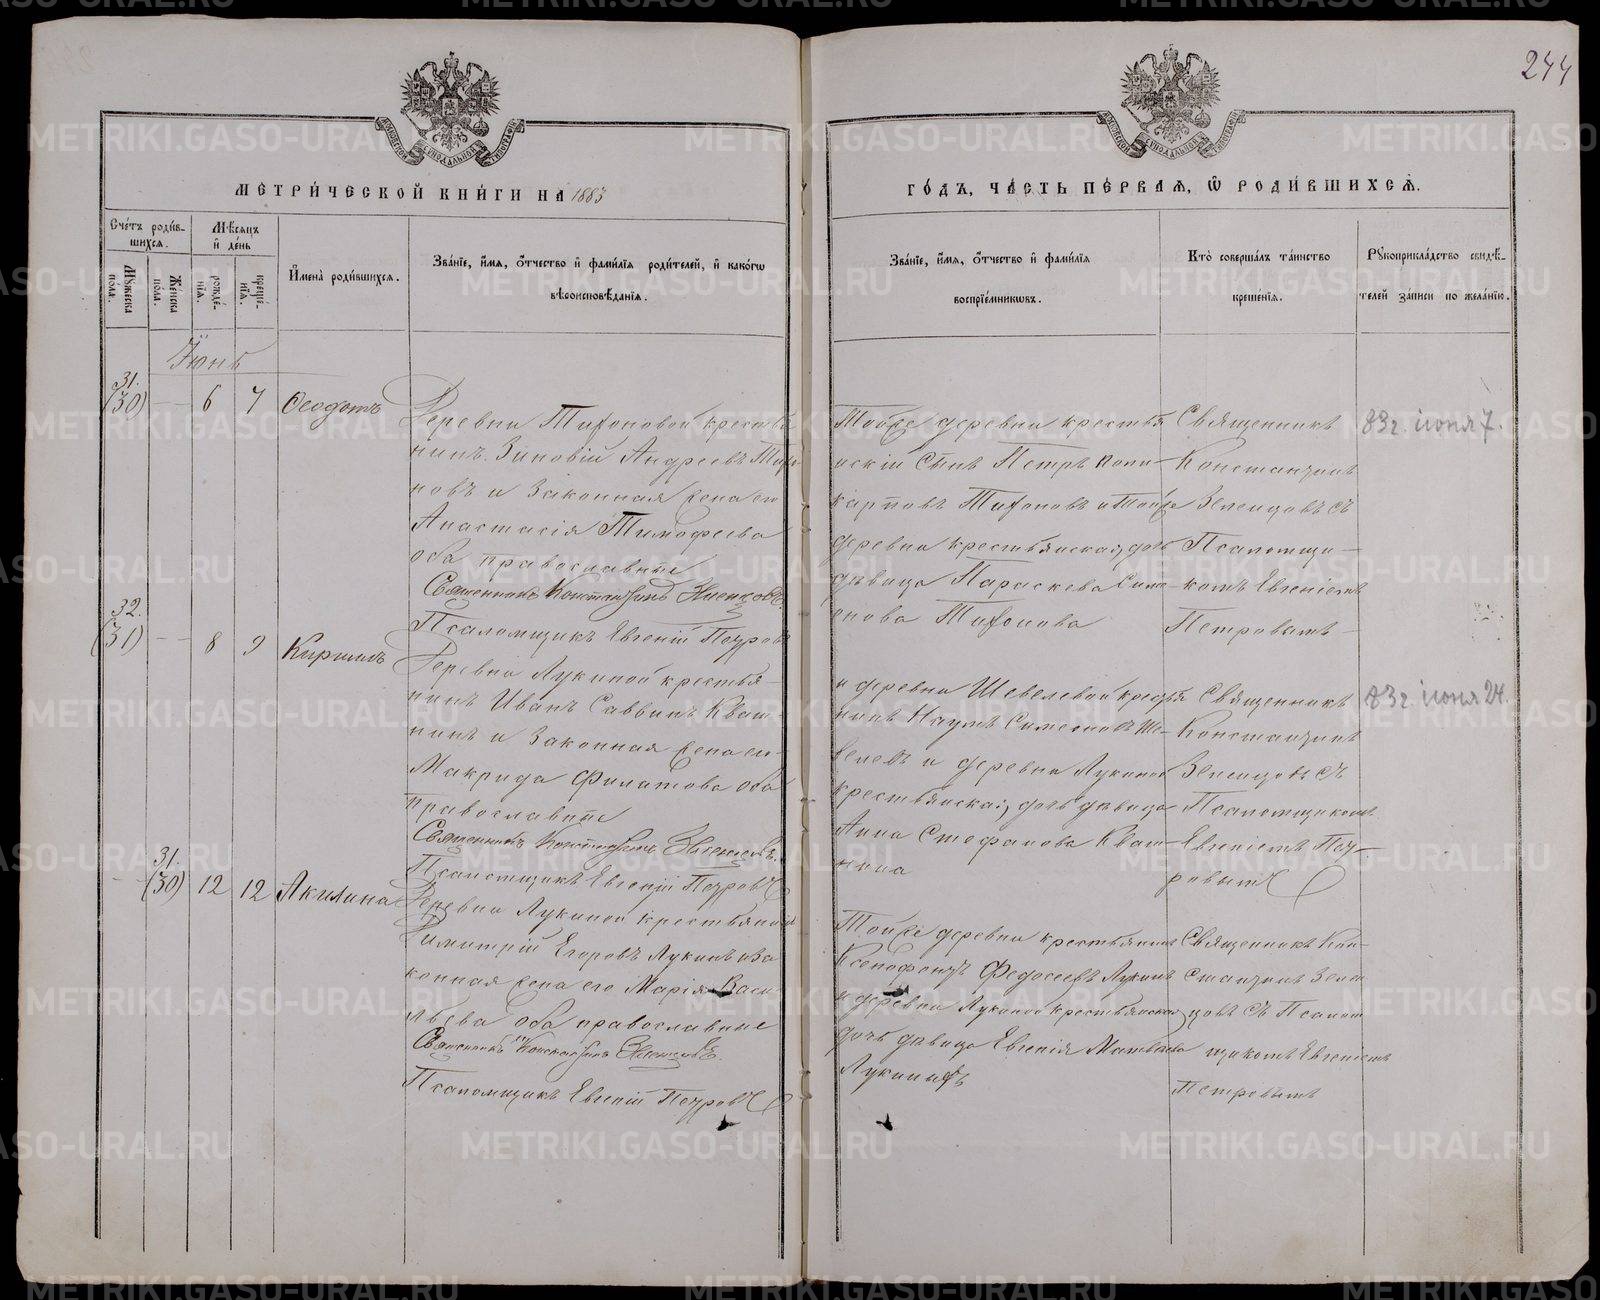 244
МЕТРИ́ЧЕСКОЙ КНИ́ГИ НА 1883
ГО́ДЪ, ЧА́СТЬ ПЕ́РВАЯ, Ѿ РОДИ́ВШИХСЯ.
Сче́тъ роди́в-
шихся.
Мѣ́сяцъ
и҆ де́нь
Му́жеска
по́ла.
Же́нска
по́ла.
рожде́-
нїя.
креще́-
нїя.
И҆мена̀ роди́вшихся.
Зва́нїе, и҆́мя, ѻ҆́тчество и҆ фами́лїя роди́телей, и҆ како́гѡ
вѣроисповѣ́данїя.
Зва́нїе, и҆́мя, ѻ҆́тчество и҆ фами́лїя
воспрїе́мниковъ.
Кто̀ соверша́лъ та́инство
креще́нїя.
Рꙋкоприкла́дство свидѣ́-
телей за́писи по жела́нїю.
Іюнь
31.
(30) — 6 7 Ѳеодотъ
Деревни Тифоновой крестья
нинъ Зиновій Андреевъ Тифо
новъ и законная жена его
Анастасія Тимофеева
оба православные
Священникъ Константинъ Зеленцовъ
Псаломщикъ Евгеній Петровъ
Той же деревни крестья
нскій сынъ Петръ Поли-
карповъ Тифоновъ и той же
деревни крестьянская дочь
дѣвица Параскева Симе
онова Тифонова
Священникъ
Константинъ
Зеленцовъ съ
Псаломщи-
комъ Евгеніемъ
Петровымъ
83 г. іюня 7.
32.
(31) — 8 9 Кириллъ
Деревни Лукиной крестья-
нинъ Иванъ Саввинъ Кваш-
нинъ и законная жена его
Макрида Филатова оба
православные
Священникъ Константинъ Зеленцовъ
Псаломщикъ Евгеній Петровъ
и деревни Шевелевой крестья
нинъ Наумъ Симеоновъ Ше-
велевъ и деревни Лукиной
крестьянская дочь дѣвица
Анна Стефанова Кваш-
нина
Священникъ
Константинъ
Зеленцовъ съ
Псаломщикомъ
Евгеніемъ Пет-
ровымъ
83 г. іюня 24.
31.
— (30) 12 12 Акилина
Деревни Лукиной крестьянинъ
Димитрій Егоровъ Лукинъ и за
конная жена его Марія Васи
льева оба православные
Священникъ Константинъ Зеленцовъ
Псаломщикъ Евгеній Петровъ
Той же деревни крестьянинъ
Ксенофонтъ Федосеевъ Лукинъ
и деревни Лукиной крестьянская
дочь дѣвица Евгенія Матвеева
Священникъ Кон-
стантинъ Зелен
цовъ съ Псалом
щикомъ Евгеніемъ
Петровымъ
METRIKI.GASO-URAL.RU